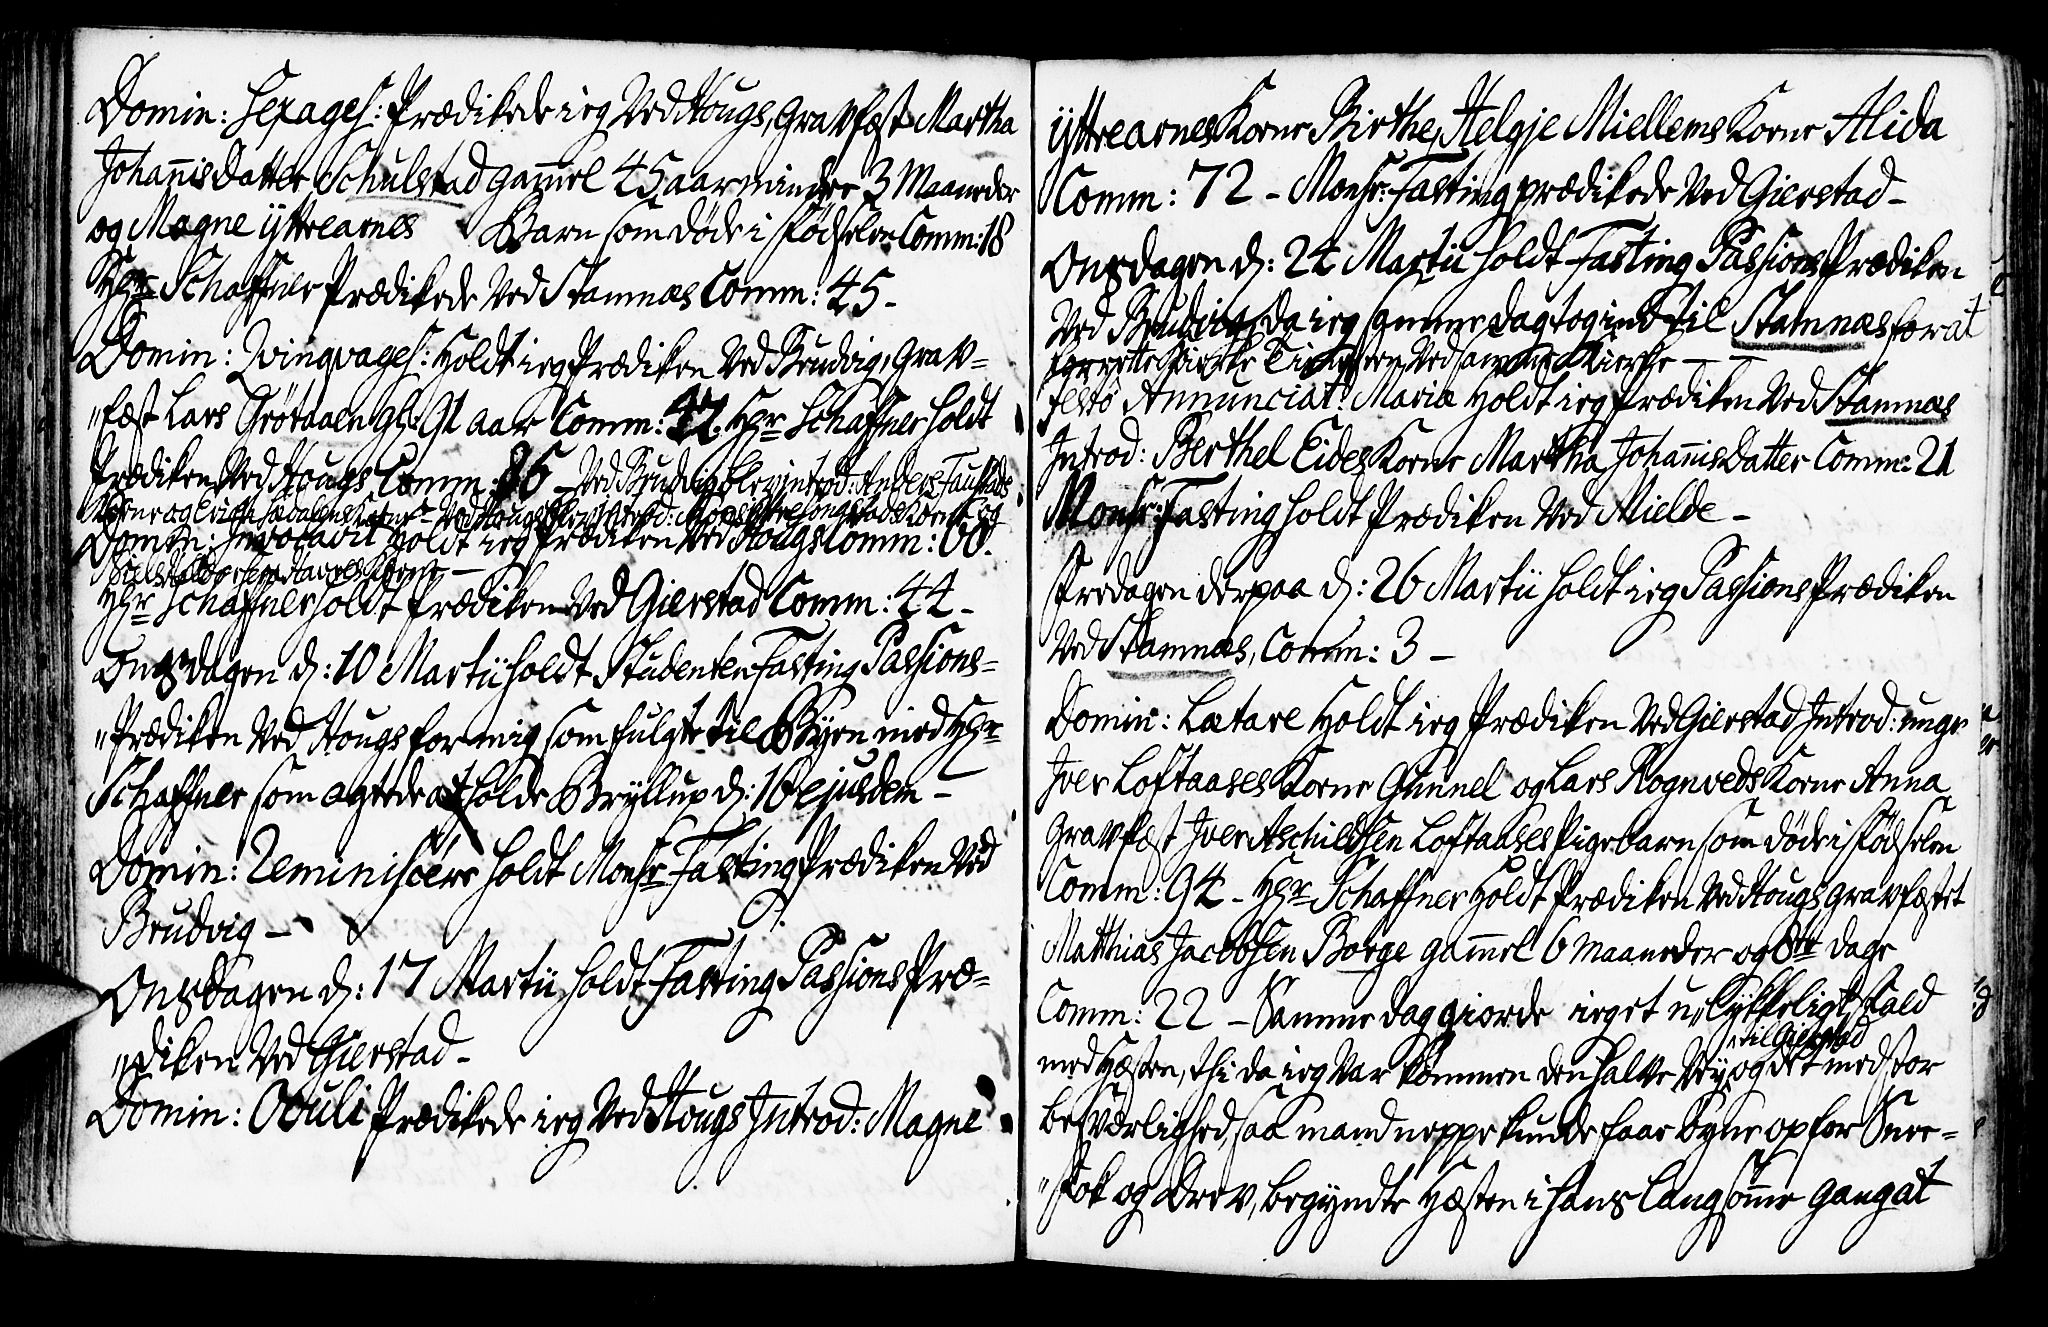 Domin: Sexages: Prædikede ieg Ved Hougs, Gravfæst Martha
Johannis Datter Schulstad gammel 45 aar mindre 3 Maaneder
og Magne ÿttrearnes Barn som døde i fødselen Comm: 18
Hr Schaffner Prædikede Ved Stamnæs Comm: 45 -
Domin: Qvinqvages: Holdt ieg Prædiken Ved Brudvig, Grav-
"fæst Lars Grøtaaen gl: 91 aar Comm: 47. Hr Schaffner holdt
Prædiken Ved Hougs Comm: 86 - Ved Brudvig blev introd: Anders Faustads
Kone og
Domin: Invocavit holdt ieg Prædiken Ved Hougs Comm: 60.
Hr Schaffner holdt Prædiken Ved Gierstad Comm: 44 -
Onsdagen d: 10 Martii holdt Studenten Fasting Passions-
"Prædiken Ved Hougs for mig som fulgte til Byen med Hr
Schaffner som agtede at holde Bryllup d: 16 ejusdem -
Domin: Reminiscere holdt Monsr Fasting Prædiken Ved
Brudvig -
Onsdagen d: 17 Martii holdt Fasting Passions Præ-
"diken Ved Gierstad -
Domin: Oculi Prædikede ieg Ved Hougs Introd: Magne
ÿttrearnes Kone Birthe, Helgje Miellems Kone Alida
Comm: 72 - Monsr: Fasting prædikede Ved Gierstad -
Onsdagen d: 24 Martii holdt Fasting Passions Prædiken
Ved Brudvig, da ieg samme dag tog ind til Stamnæs for at
forrette Kirke Tienesten Ved samme Kirke -
Festo Annunciat: Mariæ Holdt ieg Prædiken Ved Stamnæs
Introd: Berthel Eides Kone Martha Johannis Datter Comm: 21
Monsr: Fasting holdt Prædiken Ved Mielde -
Fredagen derpaa d: 26 Martii holdt ieg Passions Prædiken
Ved Stamnæs, Comm: 3 -
Domin: Lætare Holdt ieg Prædiken Ved Gierstad Introd: unge
Iver Loftaases Kone Gunnel og Lars Rognveds Kone Anna
Gravfæst Iver Aschildsen Loftaases Pigebarn som døde i fødselen
Comm: 94 - Hr Schaffner Holdt Prædiken Ved Hougs, gravfæstet
Matthias Jacobsen Borge gammel 6 Maaneder og 8te dage
Comm: 22 - Samme dag giorde ieg et u-lykkeligt Fald
til Gierstad
med Hæsten, thi da ieg Var kommen den halve Vey og det med stor
besværlighed, saa mand neppe kunde faae Øyne op for Snee-
"fok og Drev, begyndte Hæsten i hans langsomme gang at